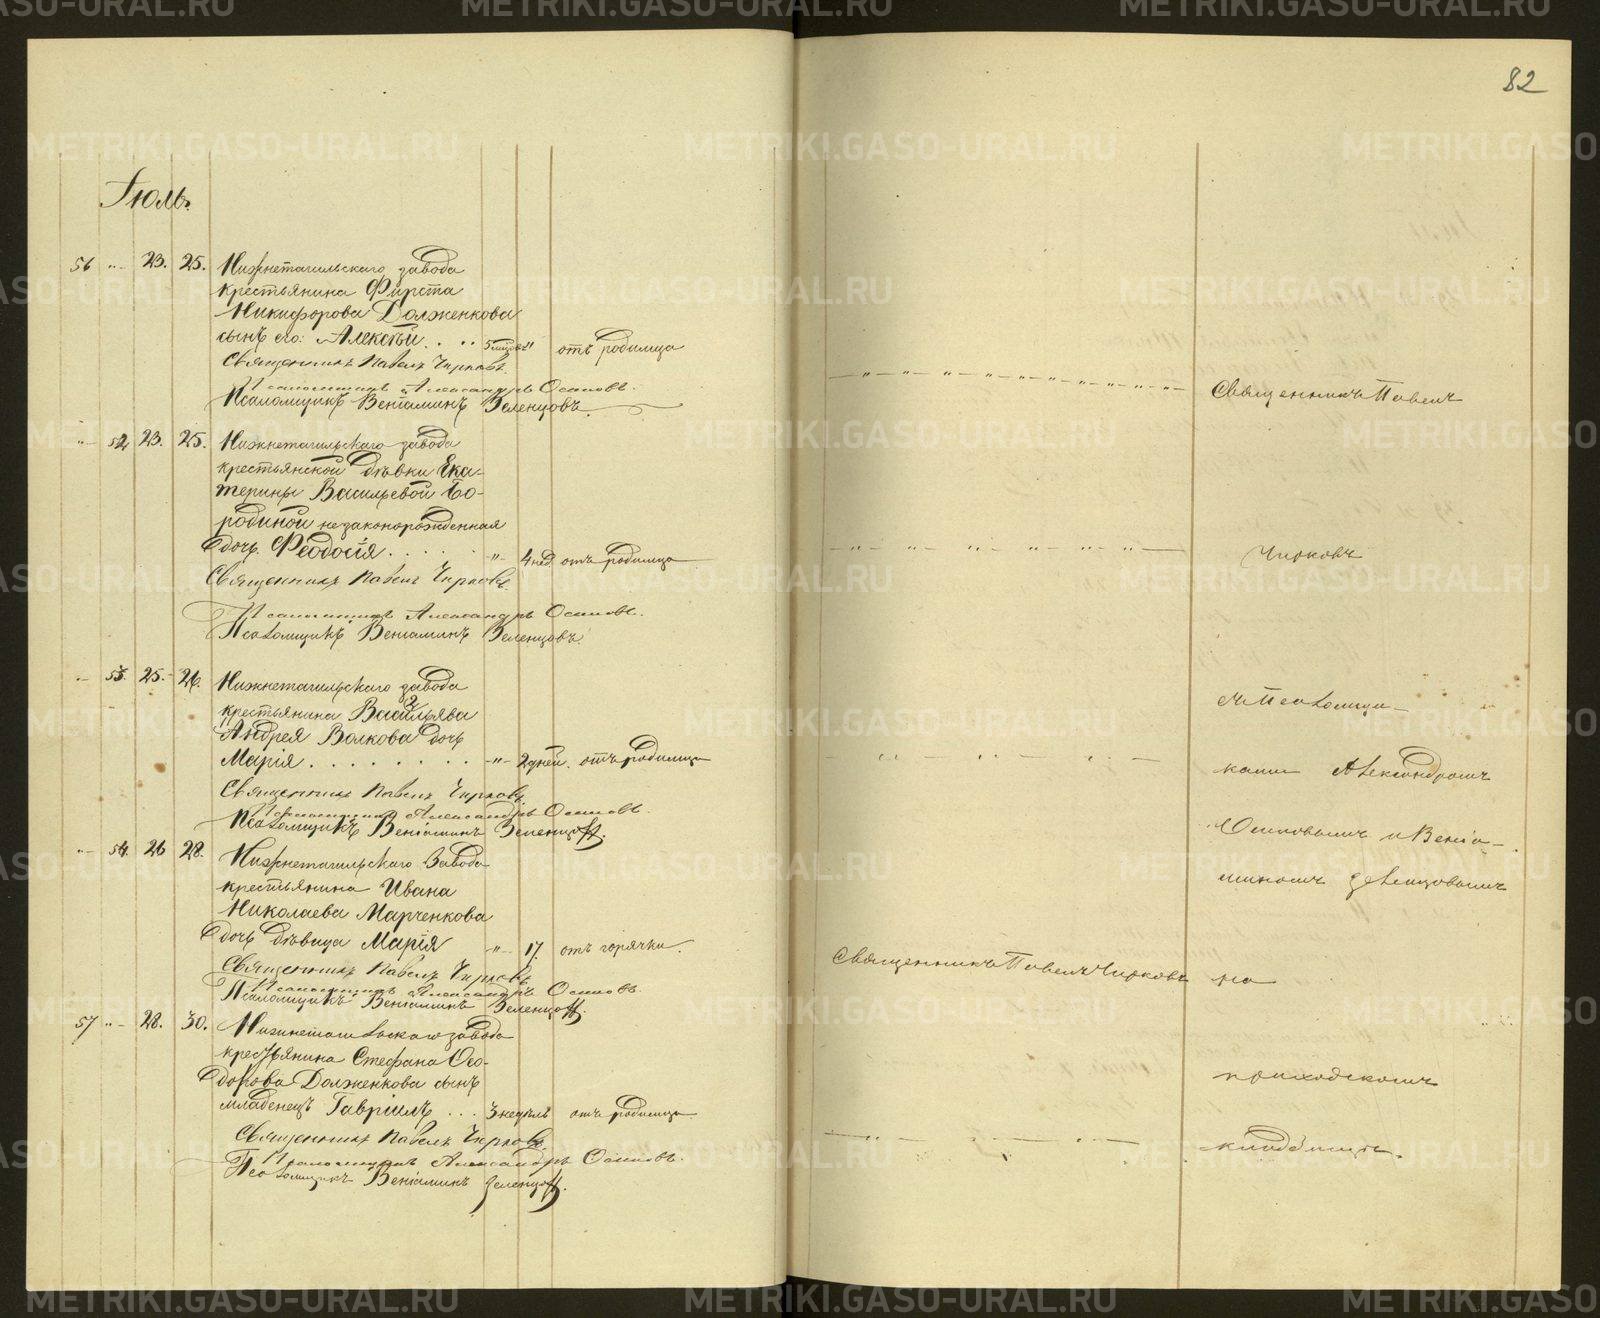 82
Іюль.
56 " 23. 25. Нижнетагильскаго завода
крестьянина Фирста
Никифорова Долженкова
сынъ его: Алексѣй . . . 5 мѣсяц. отъ родимца
Священникъ Павелъ Чирковъ.
Псаломщикъ Александръ Осиповъ.
Псаломщикъ Веніаминъ Зеленцовъ.
" 52 23. 25. Нижнетагильскаго завода
крестьянской дѣвки Ека-
терины Васильевой Бо-
родиной незаконорожденная
дочь Ѳеодосія . . . . . " 4 нед. отъ родимца
Священникъ Павелъ Чирковъ.
Псаломщикъ Александръ Осиповъ.
Псаломщикъ Веніаминъ Зеленцовъ.
" 53. 25. 26. Нижнетагильскаго завода
крестьянина Васильева
Андрея Волкова дочь
Марія . . . . . . . . " 2 дней. отъ родимца
Священникъ Павелъ Чирковъ.
Псаломщикъ Александръ Осиповъ.
Псаломщикъ Веніаминъ Зеленцовъ.
" 54. 26 28. Нижнетагильскаго завода
крестьянина Ивана
Николаева Марченкова
дочь дѣвица Марія " 17. отъ горячки.
Священникъ Павелъ Чирковъ
Псаломщикъ Александръ Осиповъ.
Псаломщикъ Веніаминъ Зеленцовъ.
57 " 28. 30. Нижнетагильскаго завода
крестьянина Стефана Ѳео-
дорова Долженкова сынъ
младенецъ Гавріилъ . . . 3 недѣль отъ родимца
Священникъ Павелъ Чирковъ
Псаломщикъ Александръ Осиповъ.
Псаломщикъ Веніаминъ Зеленцовъ.
Священникъ Павелъ Чирковъ
Священникъ Павелъ
Чирковъ
съ Псаломщи-
ками Александромъ
Осиповымъ и Веніа-
миномъ Зеленцовымъ
на
приходскомъ
кладбищѣ.
METRIKI.GASO-URAL.RU